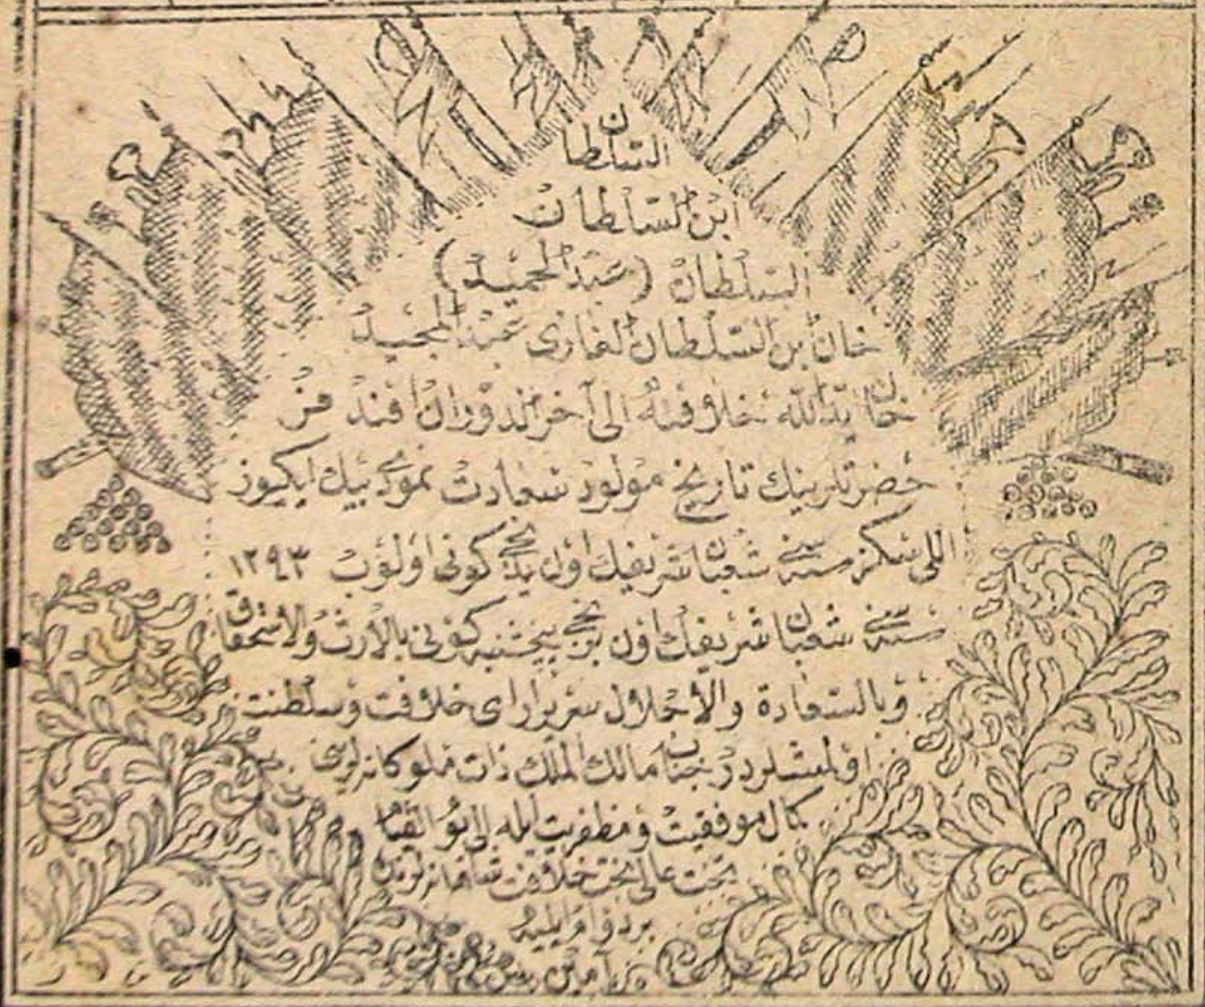 السلطان
ابن السلطان
السلطان (عبدالحميد)
خان ابن السلطان الغازى عبدالمجيد
خان ايدالله خلافته الى آخرالدوران افندمز
حضرتلرينك تاريخ مولود سعادت نمودى بيك ايكيوز
اللى سكز سنه سى شعبان شريفك اون يدنجى كونى اولوب ١٢٩٣
سنه سى شعبان شريفك اون برنجى پنجشنبه كونى بالارث والاستحقاق
وبالسعادة والاجلال سريرآراى خلافت وسلطنت
اولمشلردر جناب مالك الملك ذات ملوكانه لرينى
كمال موفقيت ومظفريت ايله الى يوم القيام
تخت عالى بخت خلافت شاهانه لرنده
بردوام ايليه
آمين